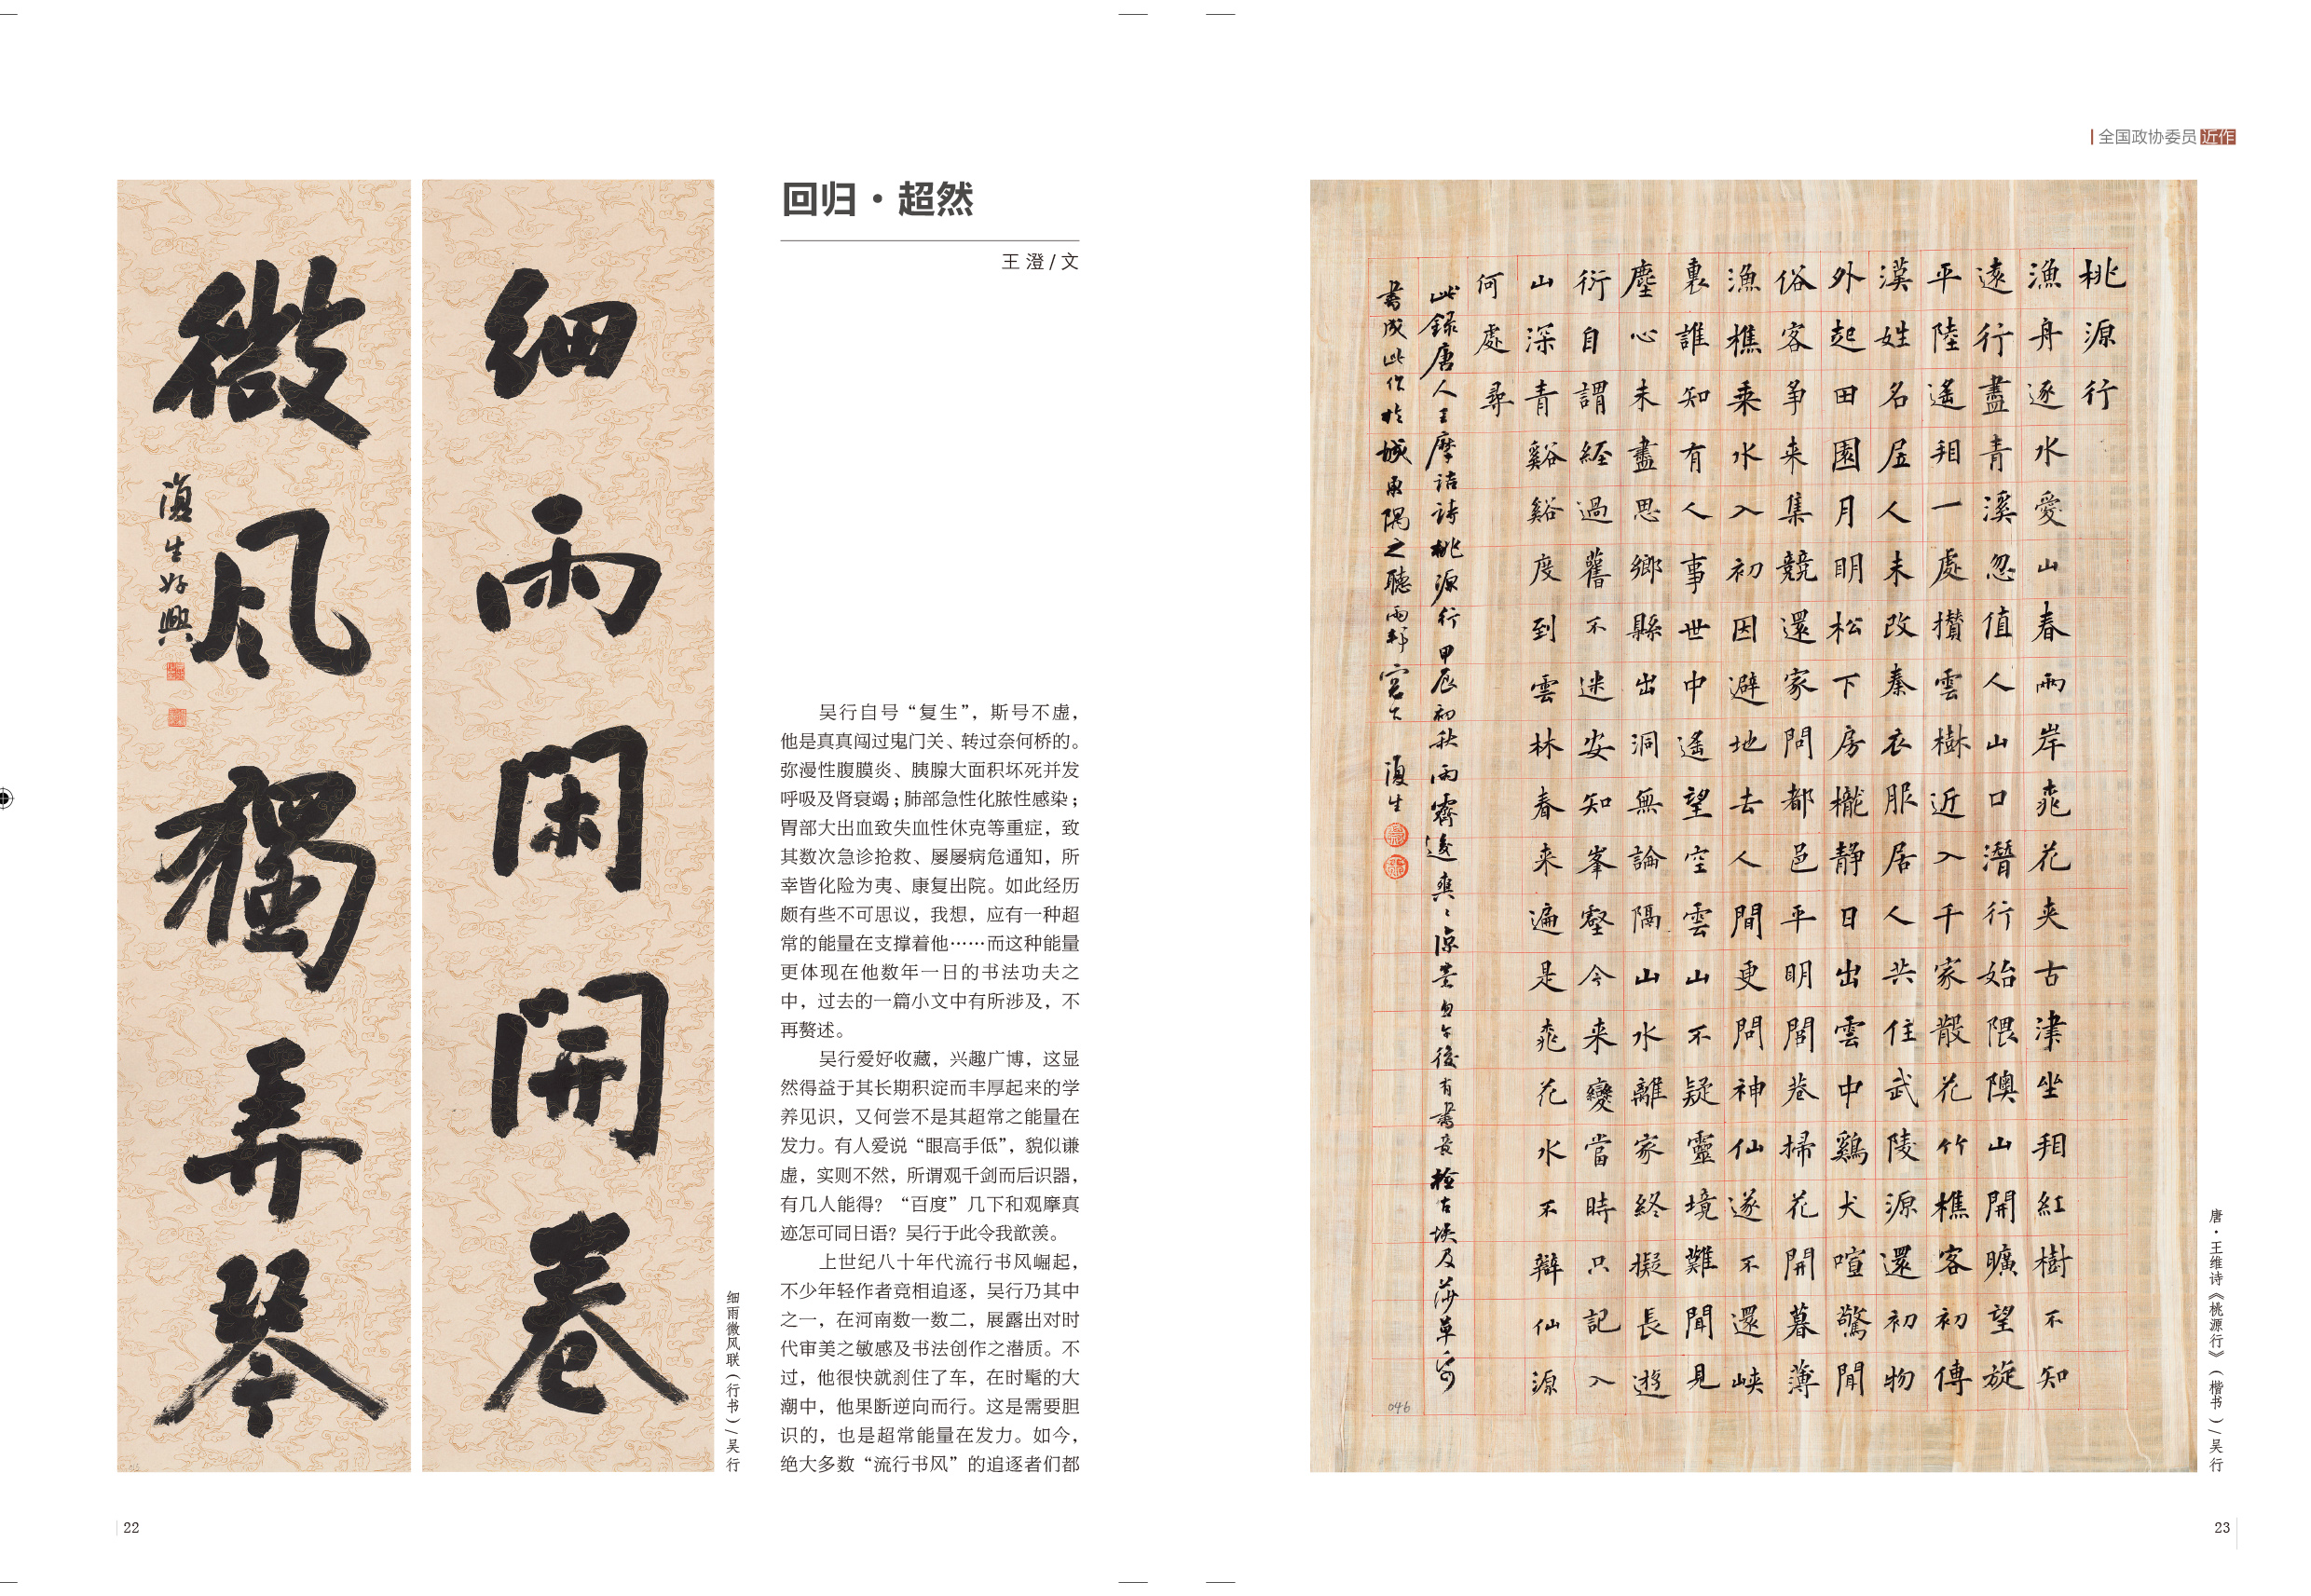 全国政协委员 近作
细雨閑開卷
微风獨弄琴
復生好興
细雨微风联（行书）/ 吴行
回归·超然
王 澄 / 文
吴行自号“复生”，斯号不虚，
他是真真闯过鬼门关、转过奈何桥的。
弥漫性腹膜炎、胰腺大面积坏死并发
呼吸及肾衰竭；肺部急性化脓性感染；
胃部大出血致失血性休克等重症，致
其数次急诊抢救、屡屡病危通知，所
幸皆化险为夷、康复出院。如此经历
颇有些不可思议，我想，应有一种超
常的能量在支撑着他……而这种能量
更体现在他数年一日的书法功夫之
中，过去的一篇小文中有所涉及，不
再赘述。
吴行爱好收藏，兴趣广博，这显
然得益于其长期积淀而丰厚起来的学
养见识，又何尝不是其超常之能量在
发力。有人爱说“眼高手低”，貌似谦
虚，实则不然，所谓观千剑而后识器，
有几人能得？“百度”几下和观摩真
迹怎可同日语？吴行于此令我歆羡。
上世纪八十年代流行书风崛起，
不少年轻作者竞相追逐，吴行乃其中
之一，在河南数一数二，展露出对时
代审美之敏感及书法创作之潜质。不
过，他很快就刹住了车，在时髦的大
潮中，他果断逆向而行。这是需要胆
识的，也是超常能量在发力。如今，
绝大多数“流行书风”的追逐者们都
22
桃源行
漁舟逐水愛山春兩岸桃花夾古津坐看紅樹不知
遠行盡青溪忽值人山口潛行始隈隩山開曠望旋
平陸遙看一處攢雲樹近入千家散花竹樵客初傳
漢姓名居人未改秦衣服居人共住武陵源還初物
外起田園月明松下房櫳靜日出雲中鷄犬喧驚聞
俗客爭来集競還家問都邑平明閭巷掃花開暮薄
漁樵乘水入初因避地去人間更問神仙遂不還峽
裏誰知有人事世中遙望空雲山不疑靈境難聞見
塵心未盡思鄉縣出洞無論隔山水離家終擬長遊
衍自謂經過舊不迷安知峯壑今来變當時只記入
山深青谿谿度到雲林春来遍是桃花水不辯仙源
何處尋
此録唐人王摩诘詩桃源行甲辰初秋雨霽後爽午後有書意檢古埃及莎草紙
書成此作於城東隅之聽雨軒窗下 復生
046
唐·王维诗《桃源行》（楷书）/ 吴行
23